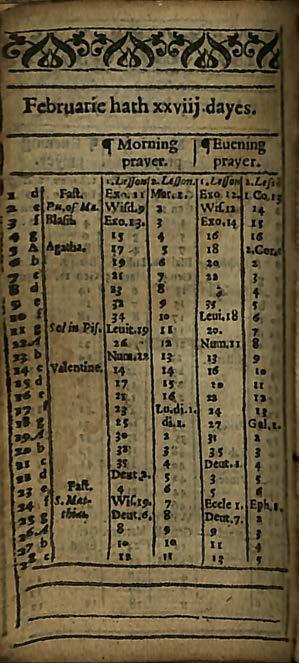 Februarie hath xxviij.dayes.
¶ Morning prayer. ¶ Euening prayer.
1. Lesson 2. Lesson. 1. Lesson 2. Less
1 d Fast. Exo. 11 Mar. 1. Exo. 12. 1. Co. 13
2 e Pu. of Ma. Wisd. 9 2 Wis. 12 14
3 f Blasii. Exo. 13. 3 Exo. 14 15
4 g 15 4 16 16
5 A Agatha. 17 5 18 2. Cor.
6 b 19 6 20 2
7 c 21 7 22 3
8 d 23 8 4
9 e 32 9 35
10 f 34 10 Leui. 18 6
11 g Sol in Pis. Leuit. 19 11 20. 7
12 A 26 12 Num. 11 8
13 b Num. 12 13 13 9
14 c Valentine. 14 14 16 10
15 d 17 15 20 11
16 e 21 16 22 12
17 f 23 Lu. di. 1. 24 13
18 g 25 di. 1. 27 Gal. 1.
19 A 30 2 31 2
20 b 32 3 35 3
21 c 35 4 Deut. 1. 4
22 d Deut. 2. 5 3 5
23 e Fast. 4 6 5 6
24 f S. Mat- Wis. 19. 7 Eccle 1. Eph. 1.
25 g thias. Deut. 6. 8 Deut. 7. 2
26 A 8 9 9 3
27 b 10 10 11 4
28 c 12 11 13 5